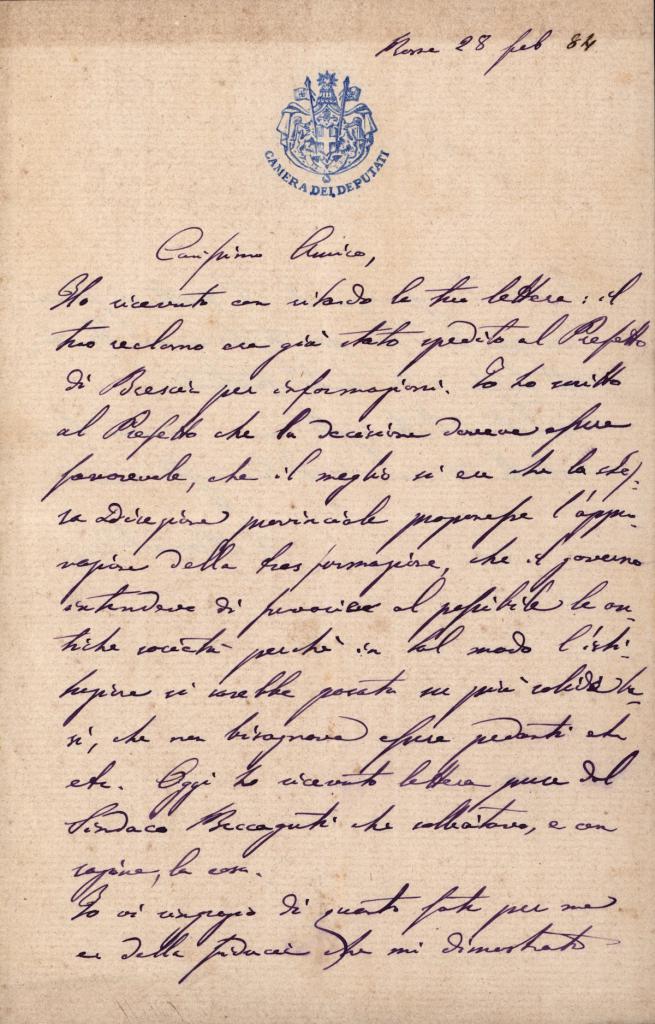 Roma 28 feb 84
CAMERA DEI DEPUTATI
Carissimo Amico,
Ho ricevuto con ritardo la tua lettera: il
tuo reclamo era già stato spedito al Prefetto
di Brescia per informazioni. Io ho scritto
al Prefetto che la decisione doveva essere
favorevole, che il meglio si era che la stes-
sa Direzione provinciale proponesse l'appro-
vazione della trasformazione, che il governo
intendeva di favorire al possibile le an-
tiche società perchè in tal modo l'isti-
tuzione si sarebbe posata su più solide ba-
si, che non bisognava essere pedanti etc
etc. Oggi ho ricevuto lettera pure dal
Sindaco Beccaguti che sollecitava, e con
ragione, la cosa.
Io vi ringrazio di quanto fate per me
e della fiducia che mi dimostrate